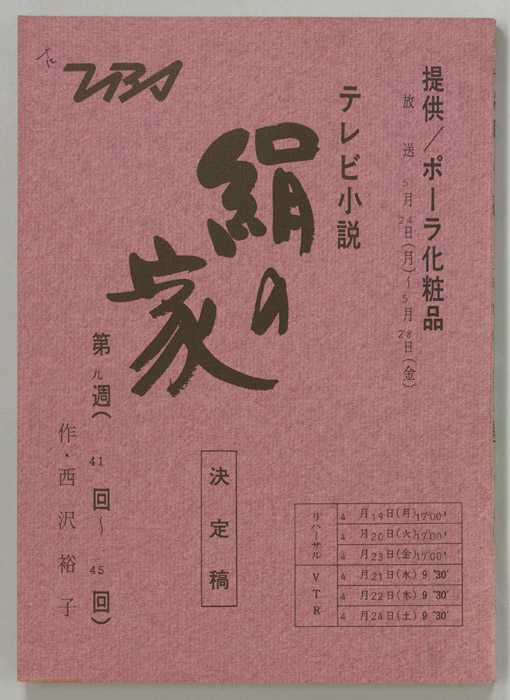 TBS
提供/ポーラ化粧品
放送 5月24日(月)~5月28日(金)
テレビ小説
絹の家
第九週(41回~45回)
作・西沢裕子
決定稿
リハーサル
4 月19日(月)17'00'
4 月20日(火)17'00'
4 月23日(金)17'00'
VTR
4 月21日(水)9'30'
4 月22日(木)9'30'
4 月24日(土)9'30'